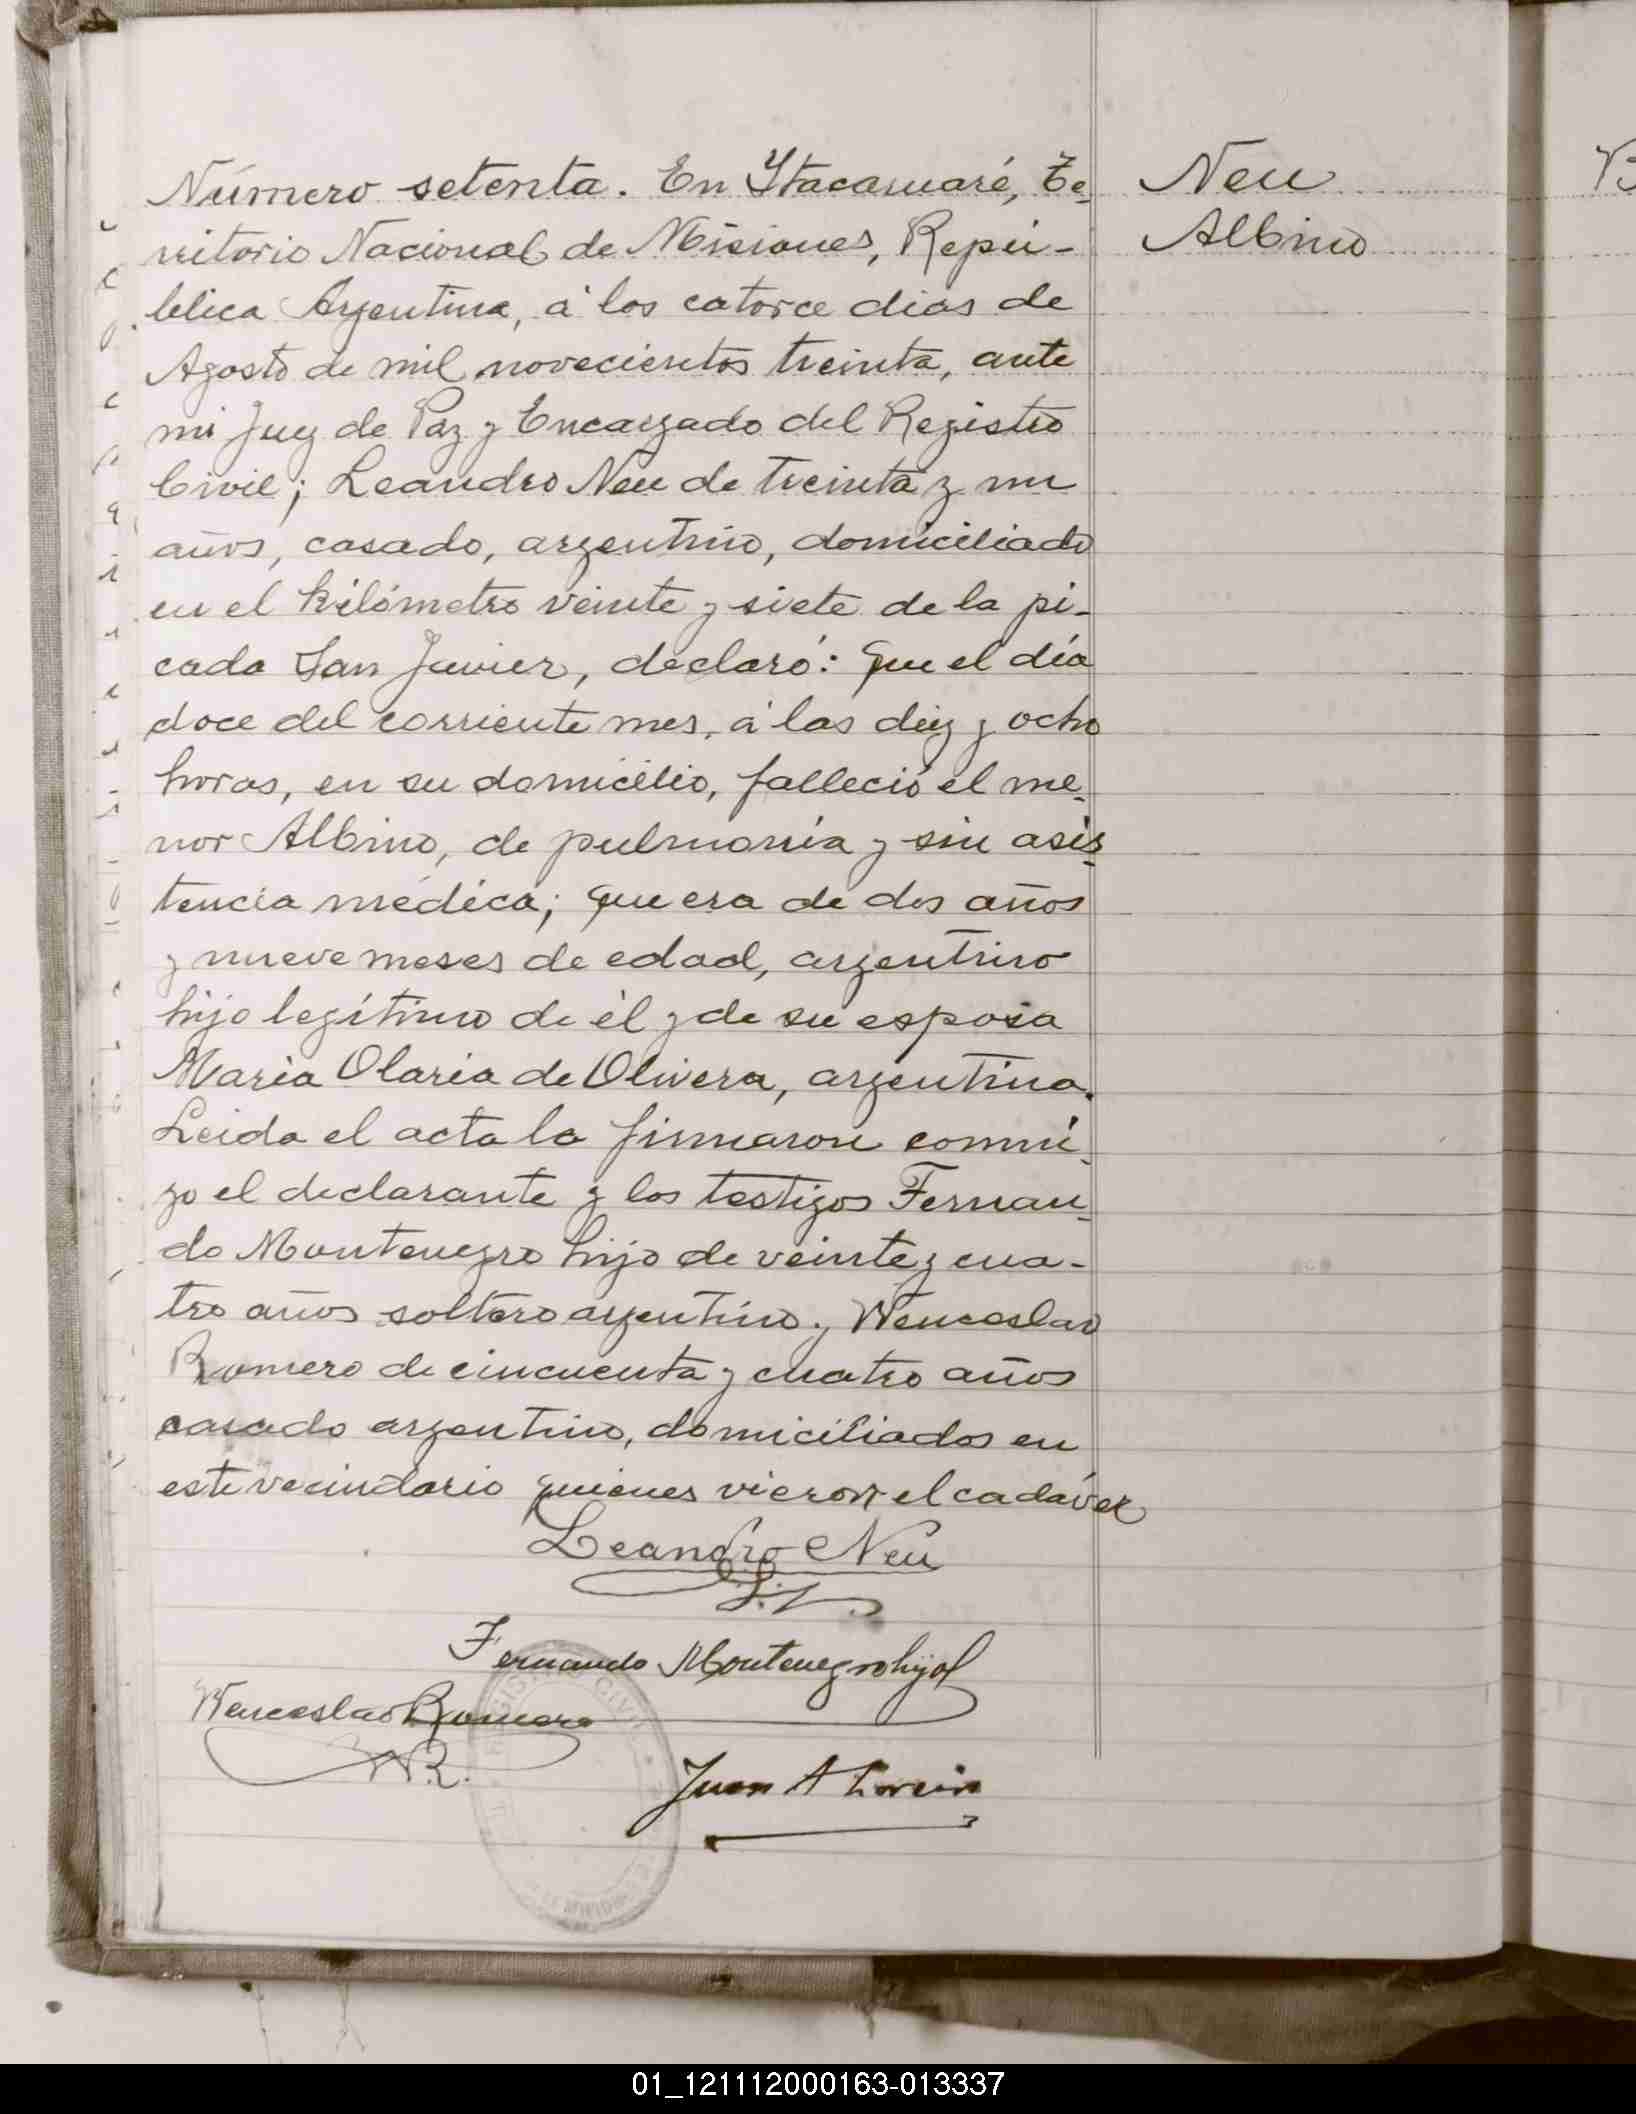 Número setenta. En Ytacaruaré, Te-
rritorio Nacional de Misiones, Repú-
blica Argentina, á los catorce dias de
Agosto de mil novecientos treinta, ante
mi Juez de Paz y Encargado del Registro
Civil; Leandro Neu de treinta y un
años, casado, argentino, domiciliado
en el kilómetro veinte y siete de la pi-
cada San Javier, declaró: Que el día
doce del corriente mes, á las diez y ocho
horas, en su domicilio, falleció el me-
nor Albino, de pulmonía y sin asis-
tencia médica; que era de dos años
y nueve meses de edad, argentino
hijo legítimo de él y de su esposa
María Olaria de Olivera, argentina.
Leida el acta la firmaron conmi-
go el declarante y los testigos Fernan-
do Montenegro hijo de veinte y cua-
tro años soltero argentino y Wenceslao
Romero de cincuenta y cuatro años
casado argentino, domiciliados en
este vecindario quienes vieron el cadáver
Leandro Neu
L. N.
Fernando Montenegro hijo
Wenceslao Romero
W R.
Juan A
REGISTRO CIVIL
Neu
Albino
01_121112000163-013337